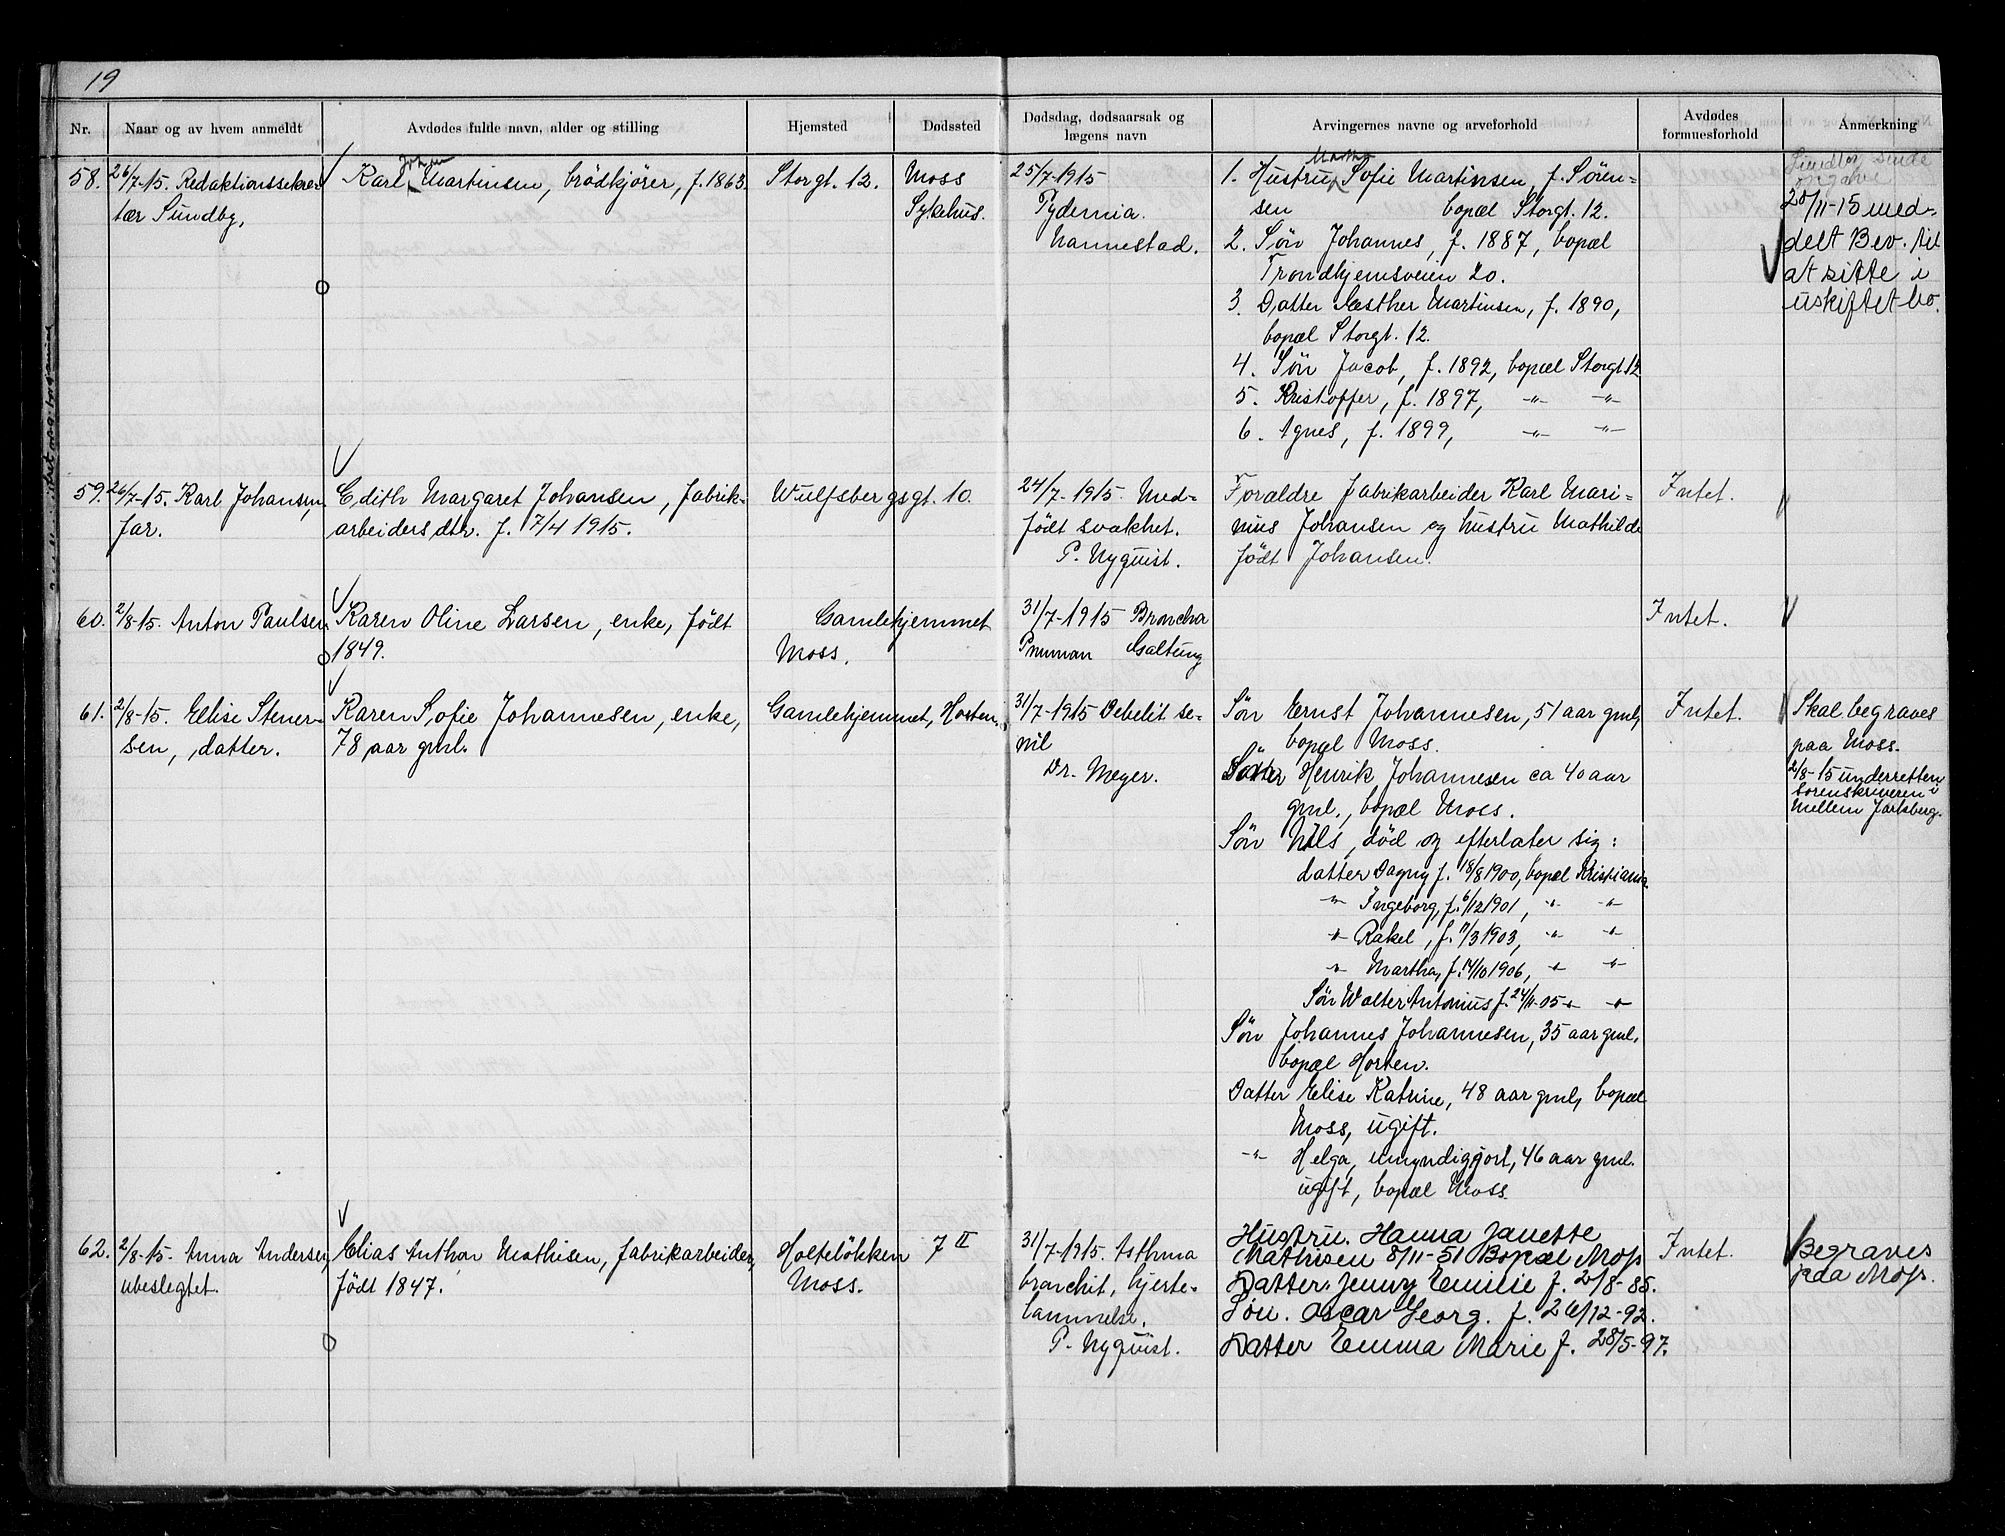 19
Nr.
Naar og av hvem anmeldt
Avdødes fulde navn, alder og stilling
Hjemsted
Dødssted
Dødsdag, dødsaarsak og
lægens navn
Arvingernes navne og arveforhold
Avdødes
formuesforhold
Anmerkning
58.
26/7-15. Redaktionssekre-
tær Sundby,
Johan
Karl Martinsen, brödkjører, f. 1863.
Storgt. 12.
Moss
Sykehus.
25/7-1915
Pydemia.
Nannestad.
Martha
1. Hustru Sofie Martinsen, f. Søren-
sen bopæl Storgt. 12.
2. Søn Johannes, f. 1887, bopæl
Trondhjemsveien 20.
3. Datter Æsther Martinsen, f. 1890,
bopæl Storgt. 12.
4. Søn Jacob, f. 1892, bopæl Storgt 12
5. Kristoffer, f. 1897, -"- -"-
6. Agnes, f. 1899, -"- -"-
sende
opgave
20/11-15 med-
delt Bev. til
at sitte i
uskiftet bo.
59.
26/7-15. Karl Johansen,
far.
Edith Margaret Johansen, fabrik-
arbeiders dtr. f. 7/4 1915.
Wulfsbergsgt. 10.
24/7-1915. Med-
födt svakhet.
P. Nyquist.
Forældre Fabrikarbeider Karl Mari-
nius Johansen og hustru Mathilde
födt Johansen.
Intet.
60.
2/8-15. Anton Paulsen
Karen Oline Larsen, enke, födt
1849.
Gamlehjemmet
Moss.
31/7-1915 Broncha
Pnuman Galtung
Intet.
61.
2/8-15. Elise Stener-
sen, datter.
Karen Sofie Johannesen, enke,
78 aar gml.
Gamlehjemmet, Horten.
31/7-1915 Debelit se-
nil
Dr. Meyer.
Søn Ernst Johannesen, 51 aar gml,
bopæl Moss.
Søn Henrik Johannesen ca 40 aar
gml., bopæl Moss.
Søn Nils, död og efterlater sig:
datter Dagny f. 18/8 1900, bopæl Kristiania
-"- Ingeborg, f. 6/12 1901, -"- -"-
-"- Rakel, f. 11/3 1903, -"- -"-
-"- Martha, f. 14/10 1906, -"- -"-
Søn Walter Antonius f. 24/11-05 -"- -"-
Søn Johannes Johannesen, 35 aar gml.
bopæl Horten.
Datter Elise Katrine, 48 aar gml, bopæl
Moss, ugift.
-"- Helga, umyndiggjort, 46 aar gml.
ugift, bopæl Moss.
Intet.
Skal begraves
paa Moss.
2/8-15 underretten
sorenskriveren i
Mellem Jarlsberg.
62.
2/8-15. Anna Andersen,
ubeslegtet.
Elias Anthon Mathisen, fabrikarbeider,
födt 1847.
Holtelökken 7 II
Moss.
31/7-1915. Asthma
bronchit, hjerte-
lammelse.
P. Nyquist.
Hustru. Hanna Janette
Mathisen 8/11-51 Bopæl Moss
Datter. Jenny Emilie f. 2/8-85.
Søn. Oscar Georg. f. 26/12-92.
Datter Emma Marie f. 28/5-97.
Intet.
Begraves
paa Moss.